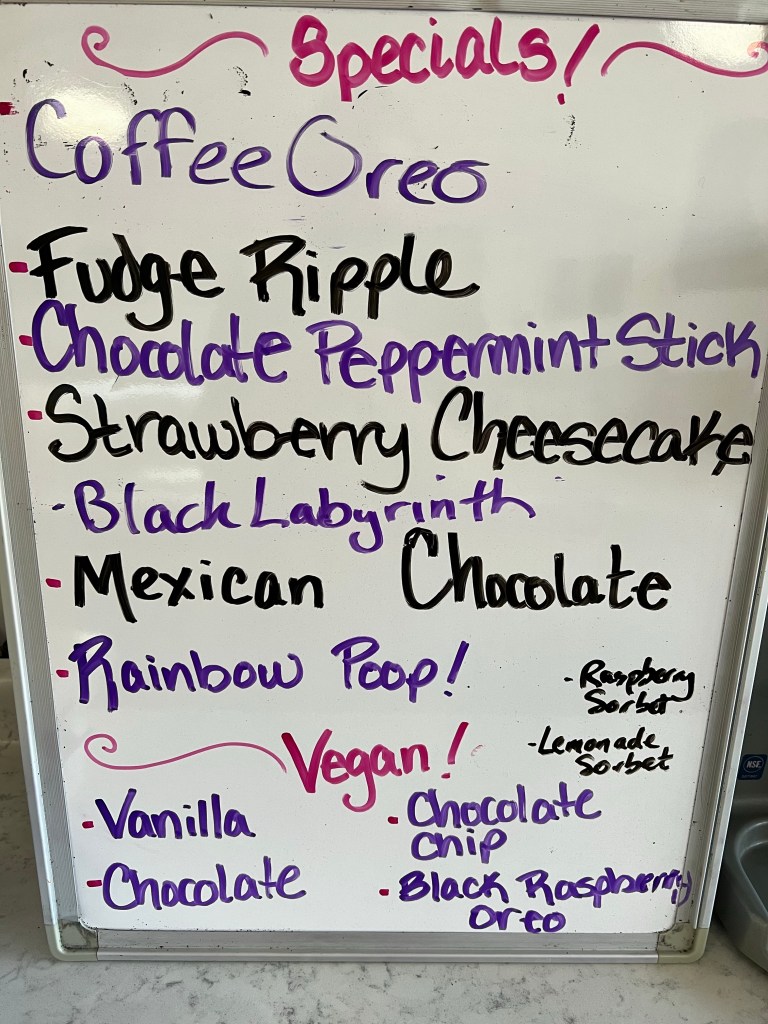 Specials!
Coffee Oreo
- Fudge Ripple
- Chocolate Peppermint Stick
- Strawberry Cheesecake
- Black Labyrinth
- Mexican Chocolate
- Rainbow Poop!
- Raspberry
Sorbet
- Lemonade
Sorbet
Vegan!
- Vanilla
- Chocolate
chip
- Chocolate
- Black Raspberry
oreo
NSF